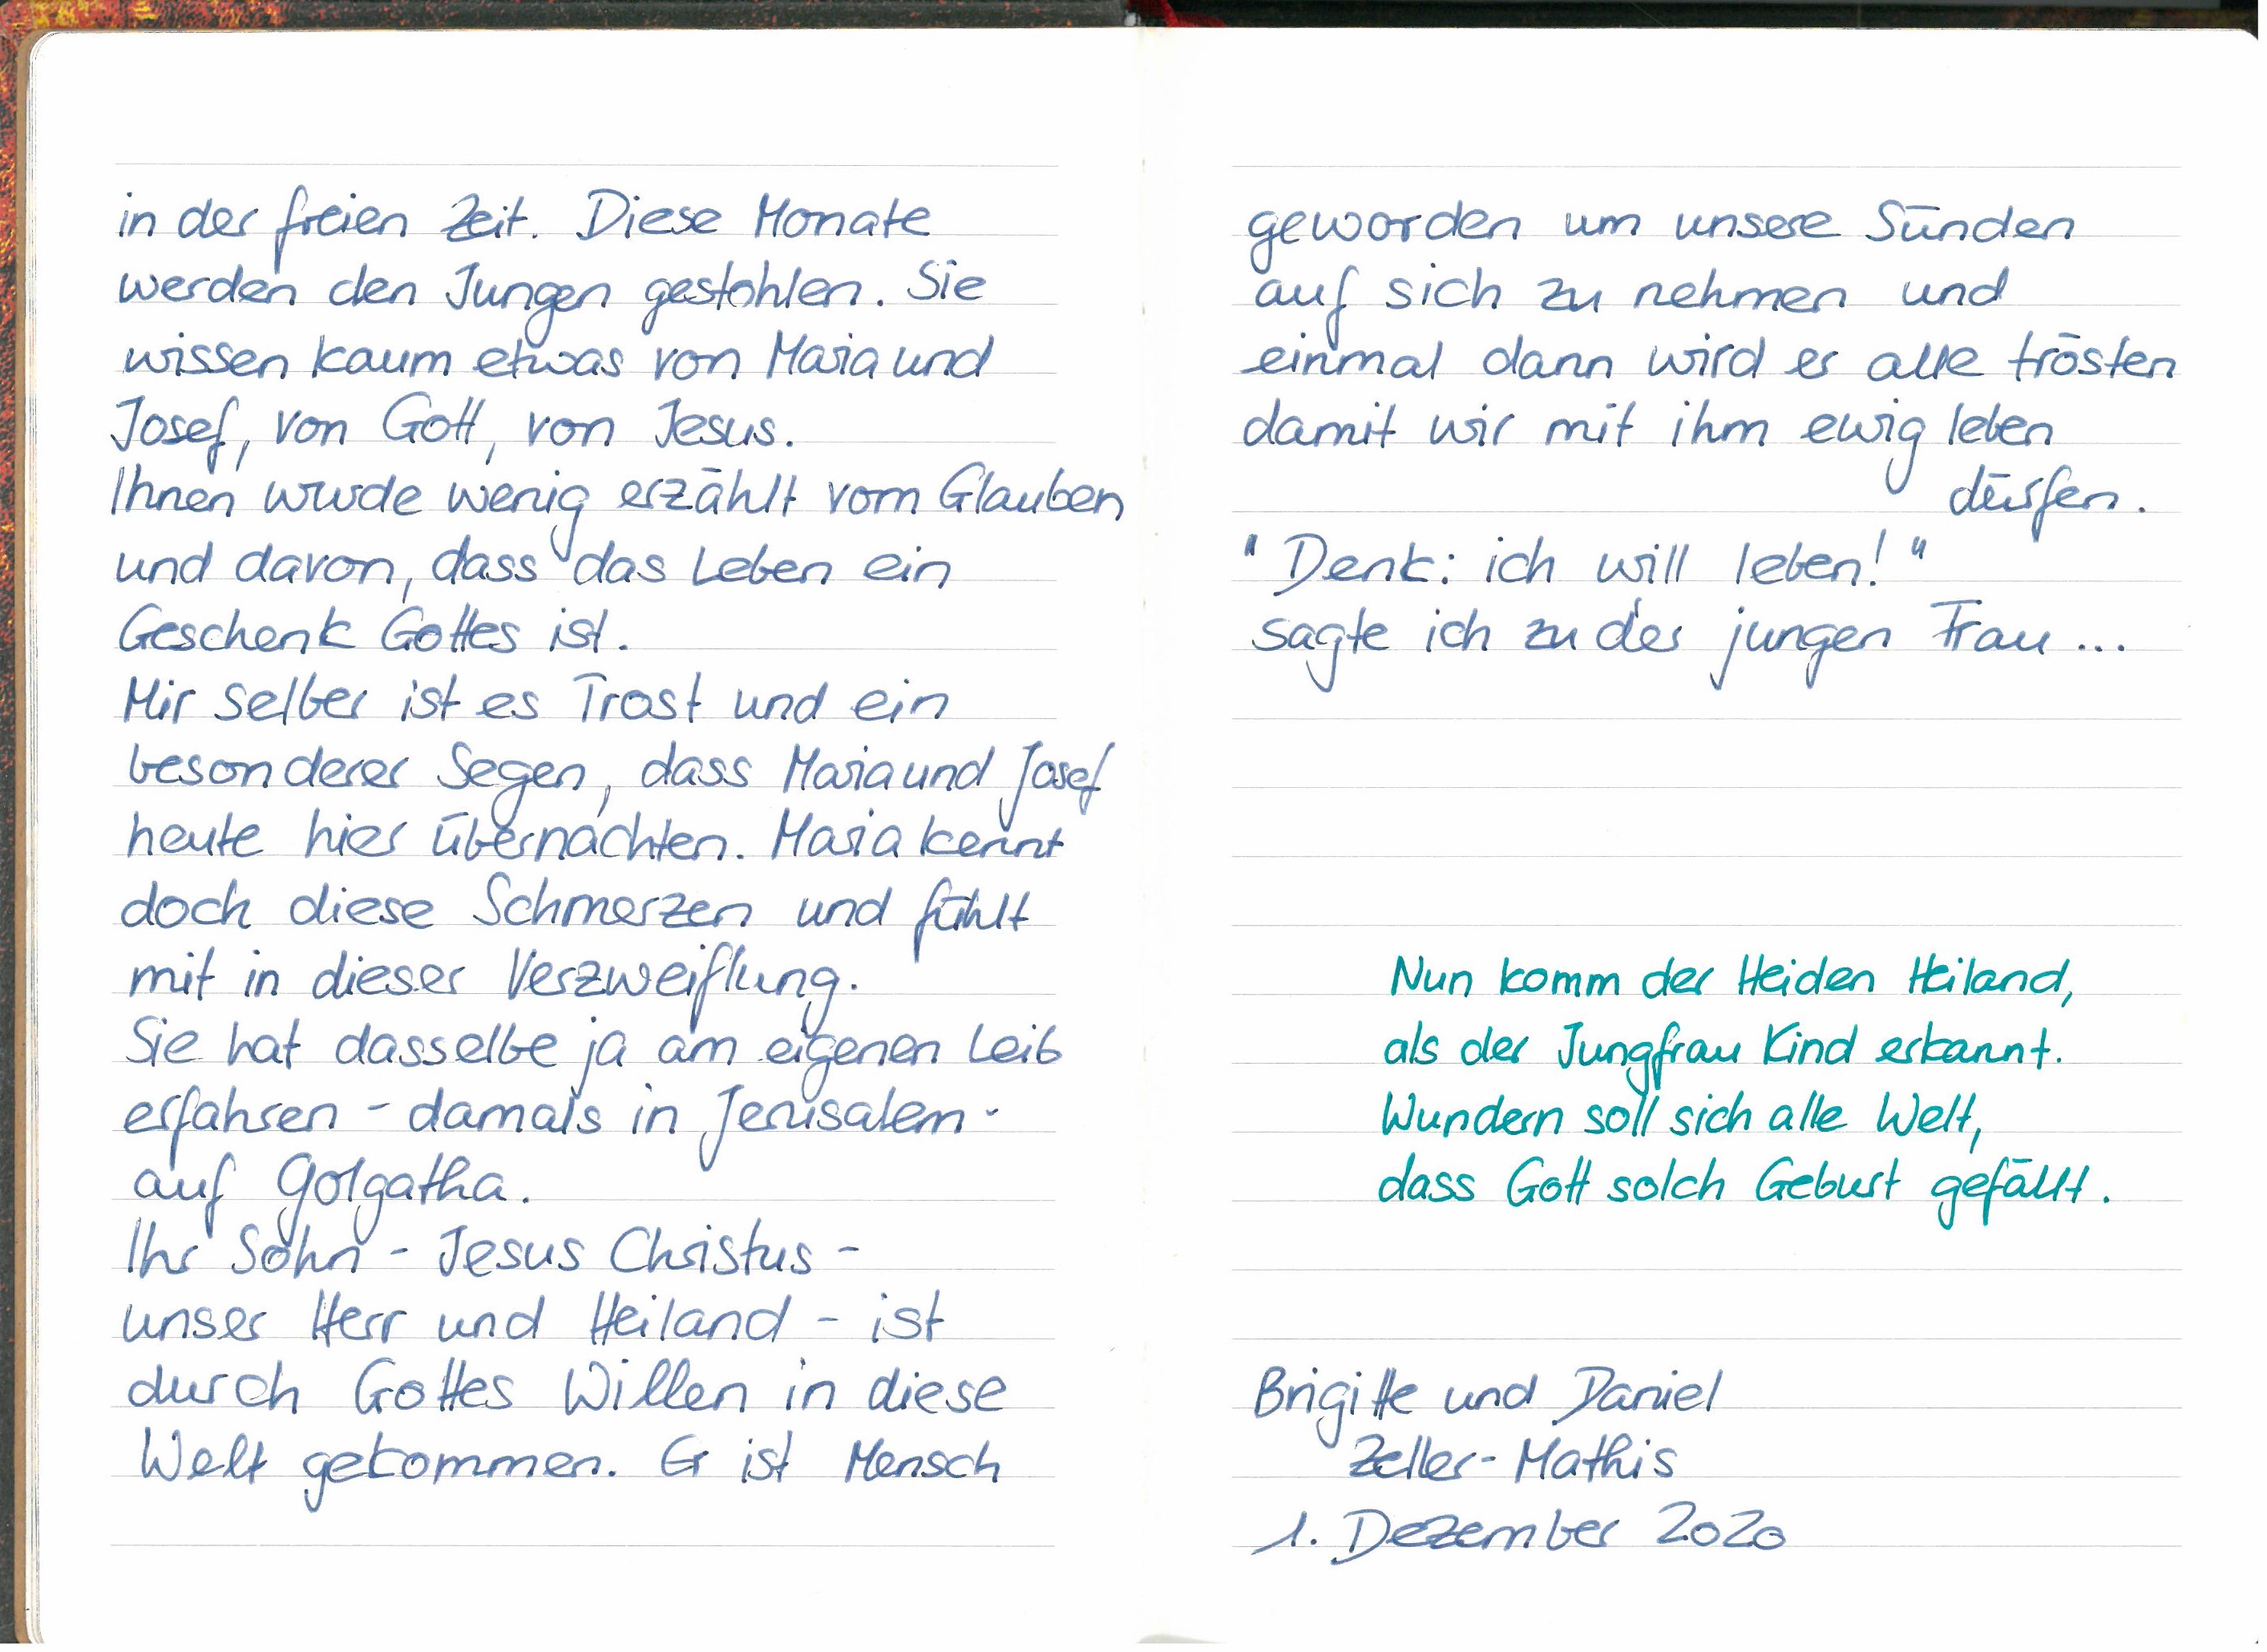 in der freien Zeit. Diese Monate
werden den Jungen gestohlen. Sie
wissen kaum etwas von Maria und
Josef, von Gott, von Jesus.
Ihnen wurde wenig erzählt vom Glauben
und davon, dass das Leben ein
Geschenk Gottes ist.
Mir selber ist es Trost und ein
besonderer Segen, dass Maria und Josef
heute hier übernachten. Maria kennt
doch diese Schmerzen und fühlt
mit in dieser Verzweiflung.
Sie hat dasselbe ja am eigenen Leib
erfahren - damals in Jerusalem -
auf Golgatha.
Ihr Sohn - Jesus Christus -
unser Herr und Heiland - ist
durch Gottes Willen in diese
Welt gekommen. Er ist Mensch
geworden um unsere Sünden
auf sich zu nehmen und
einmal dann wird er alle trösten
damit wir mit ihm ewig leben
dürfen.
"Denk: ich will leben!"
sagte ich zu der jungen Frau ...
Nun komm der Heiden Heiland,
als der Jungfrau Kind erkannt.
Wundern soll sich alle Welt,
dass Gott solch Geburt gefällt.
Brigitte und Daniel
Zeller-Mathis
1. Dezember 2020